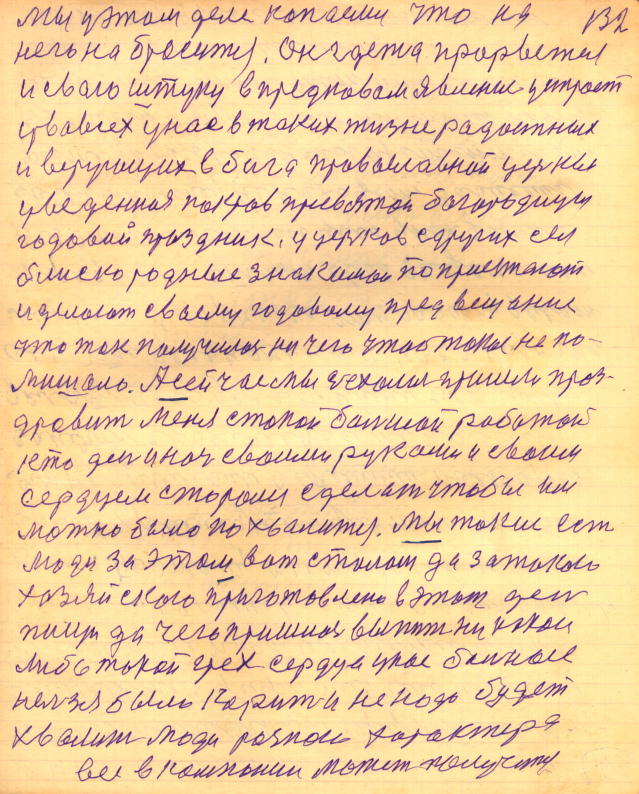 Мы у этом деле копаеми что на 132
него набросится. Он гдета прорветса
и сваю штуку в предновам явление устроет
увовсех у нас в таких жизнерадостных
и верующих в бага православной церкви
уведенная покров присвятой багородицы
годовой праздник, у церков с других сел
блиско родные знакомаи поприежают
и делоют своему годовому предвещание
што так получилоя ничего чтоб токое не по-
мишало. А сейчас мы уехали пришли поз-
дравит меня с такой баишой работай
кто ден и ноч своими руками и своим
сердцем старои сделат чтобы им
можно было похвалится. Мы такие ест
люди за этом вот сталом да затакого
хозяйского приготовлено в этот ден
пищи да чего пришлоя выпит ни какой
либо такой грех сердца унас баиное
нелзя было карит и не надо будет
хвалит люди разнои характера
все в компании может получится